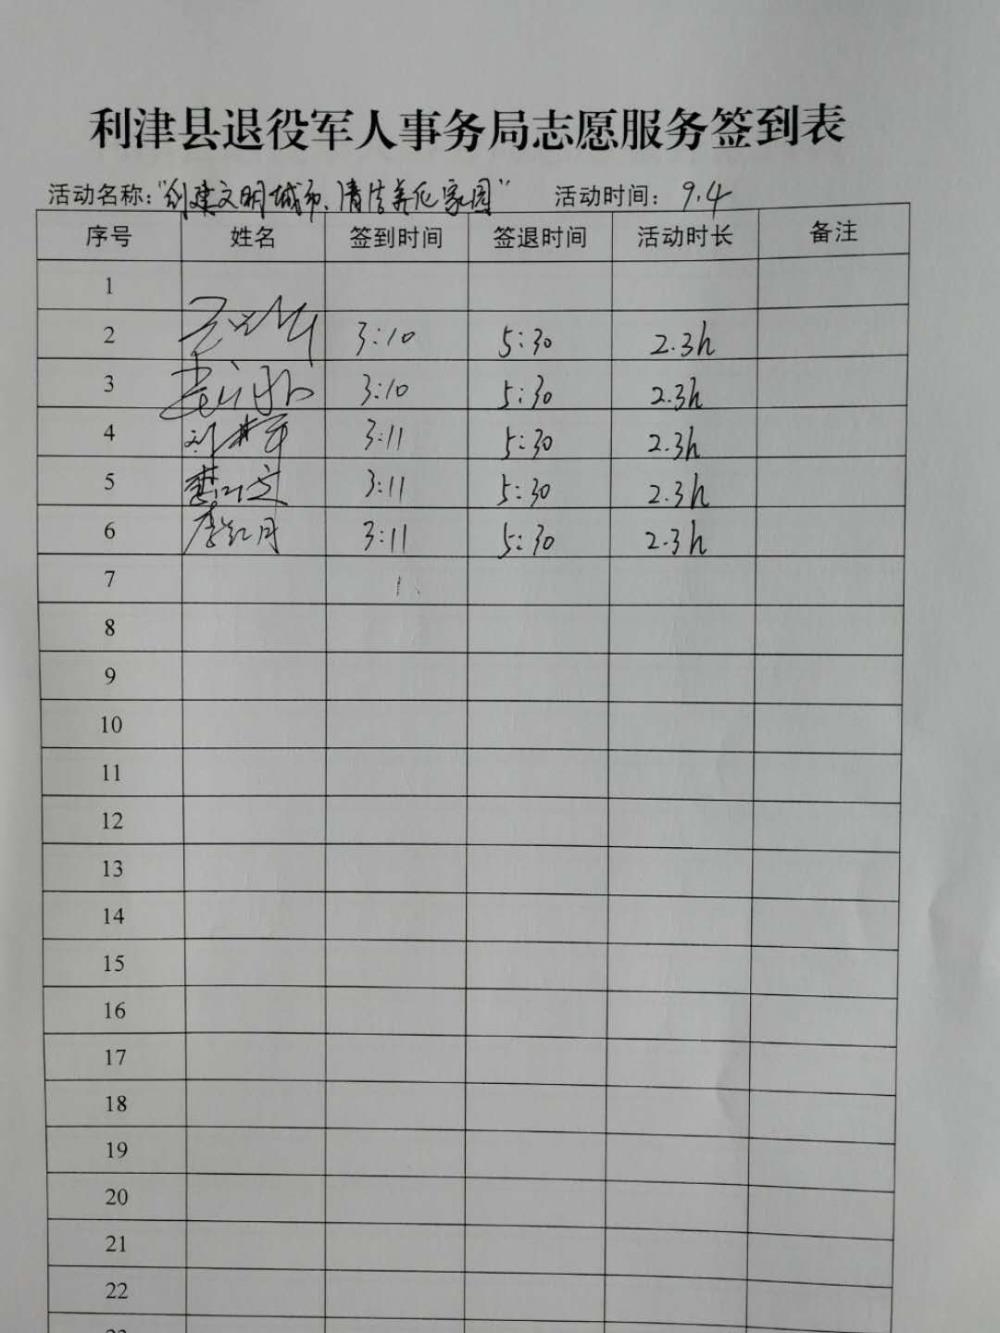 利津县退役军人事务局志愿服务签到表
活动名称："创建文明城市、清洁美化家园" 活动时间：9.4
序号 姓名 签到时间 签退时间 活动时长 备注
1
2 3:10 5:30 2.3h
3 3:10 5:30 2.3h
4 3:11 5:30 2.3h
5 3:11 5:30 2.3h
6 李红月 3:11 5:30 2.3h
7
8
9
10
11
12
13
14
15
16
17
18
19
20
21
22